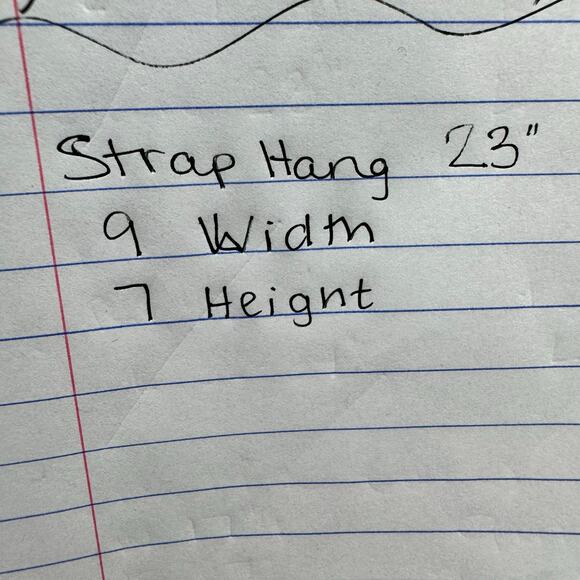 Strap Hang 23"
9 Width
7 Height